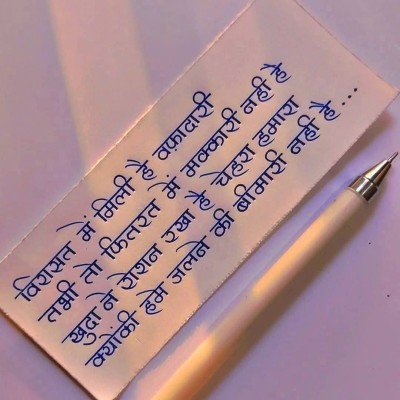 विरासत में मिली है वफ़ादारी
तभी तो फितरत में मक्कारी नही है
खुदा ने रोशन रखा है चेहरा हमारा
क्योंकी हमे जलने की बीमारी नही है ...